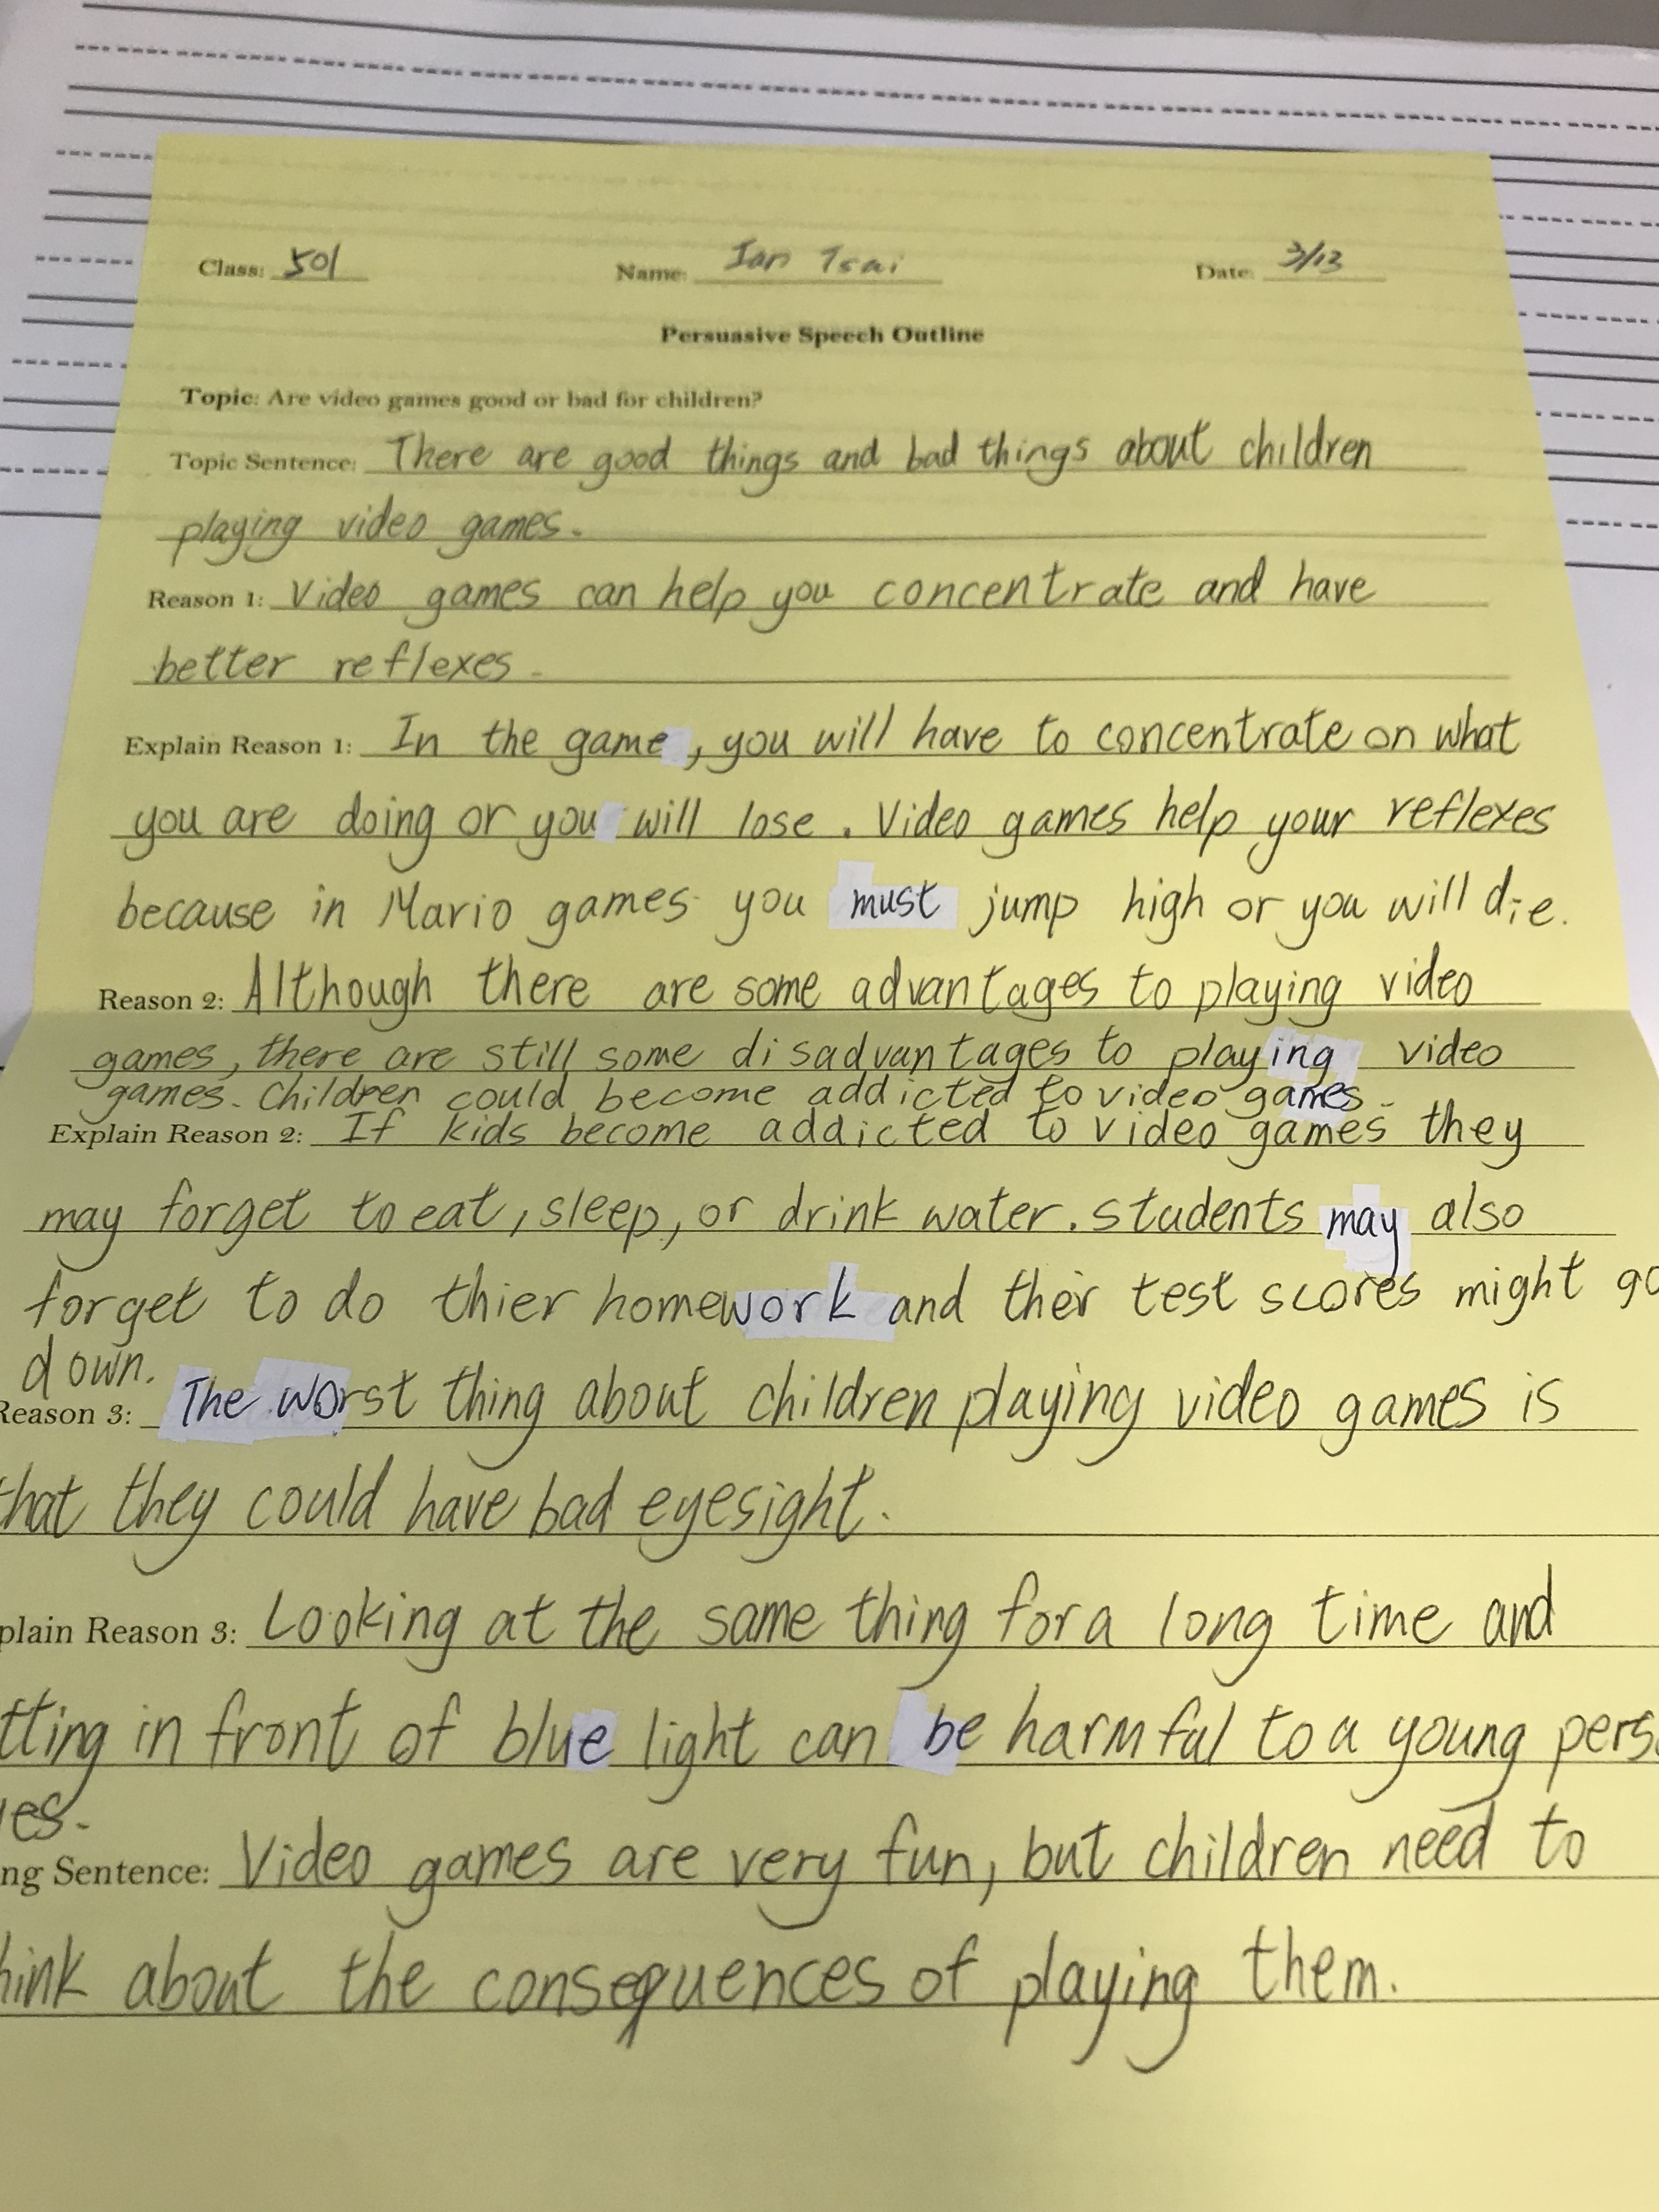 Class: 501 Name: Ian Tsai Date: 3/13
Persuasive Speech Outline
Topic: Are video games good or bad for children?
Topic Sentence: There are good things and bad things about children
playing video games.
Reason 1: Video games can help you concentrate and have
better reflexes.
Explain Reason 1: In the game, you will have to concentrate on what
you are doing or you will lose. Video games help your reflexes
because in Mario games you must jump high or you will die.
Reason 2: Although there are some advantages to playing video
games, there are still some disadvantages to playing video
games. Children could become addicted to video games.
Explain Reason 2: If kids become addicted to video games they
may forget to eat, sleep, or drink water. students may also
forget to do thier homework and their test scores might go
down.
Reason 3: The worst thing about children playing video games is
that they could have bad eyesight.
plain Reason 3: Looking at the same thing for a long time and
tting in front of blue light can be harmful to a young pers
es.
ng Sentence: Video games are very fun, but children need to
hink about the consequences of playing them.